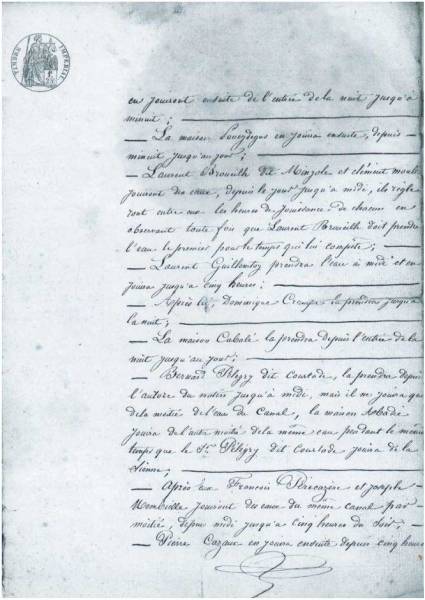 TIMBRE IMPERIAL
en jouiront ensuite de l'entrée de la nuit jusqu'à
minuit;
— La maison en jouira ensuite, depuis
minuit jusqu'au jour;
— Laurent dit Minzole et clément
jouiront des eaux, depuis le jour jusqu'à midi, ils règle
ront entre eux les heures de jouissance de chacun en
observant toute fois que Laurent doit prendre
l'eau le premier pour le temps qui lui compète;
— Laurent Guillentou prendra l'eau à midi et en
jouira jusqu'à cinq heures;
— Après lui, Dominique la prendra jusqu'à
la nuit;
— La maison Cabalé la prendra depuis l'entrée de la
nuit jusqu'au jour;
— Bernard Pélegry dit Courtade, la prendra depuis
l'aurore du matin jusqu'à midi, mais il ne jouira que
de la moitié de l'eau du Canal, la maison Abadie
jouira de l'autre moitié de la même eau pendant le même
temps que le Sr Pélegry dit Courtade jouira de la
sienne;
— Après eux François et joseph
jouiront des eaux du même canal par
moitié, depuis midi jusqu'à cinq heures du soir;
— Pierre Cazaux en jouira ensuite depuis cinq heures